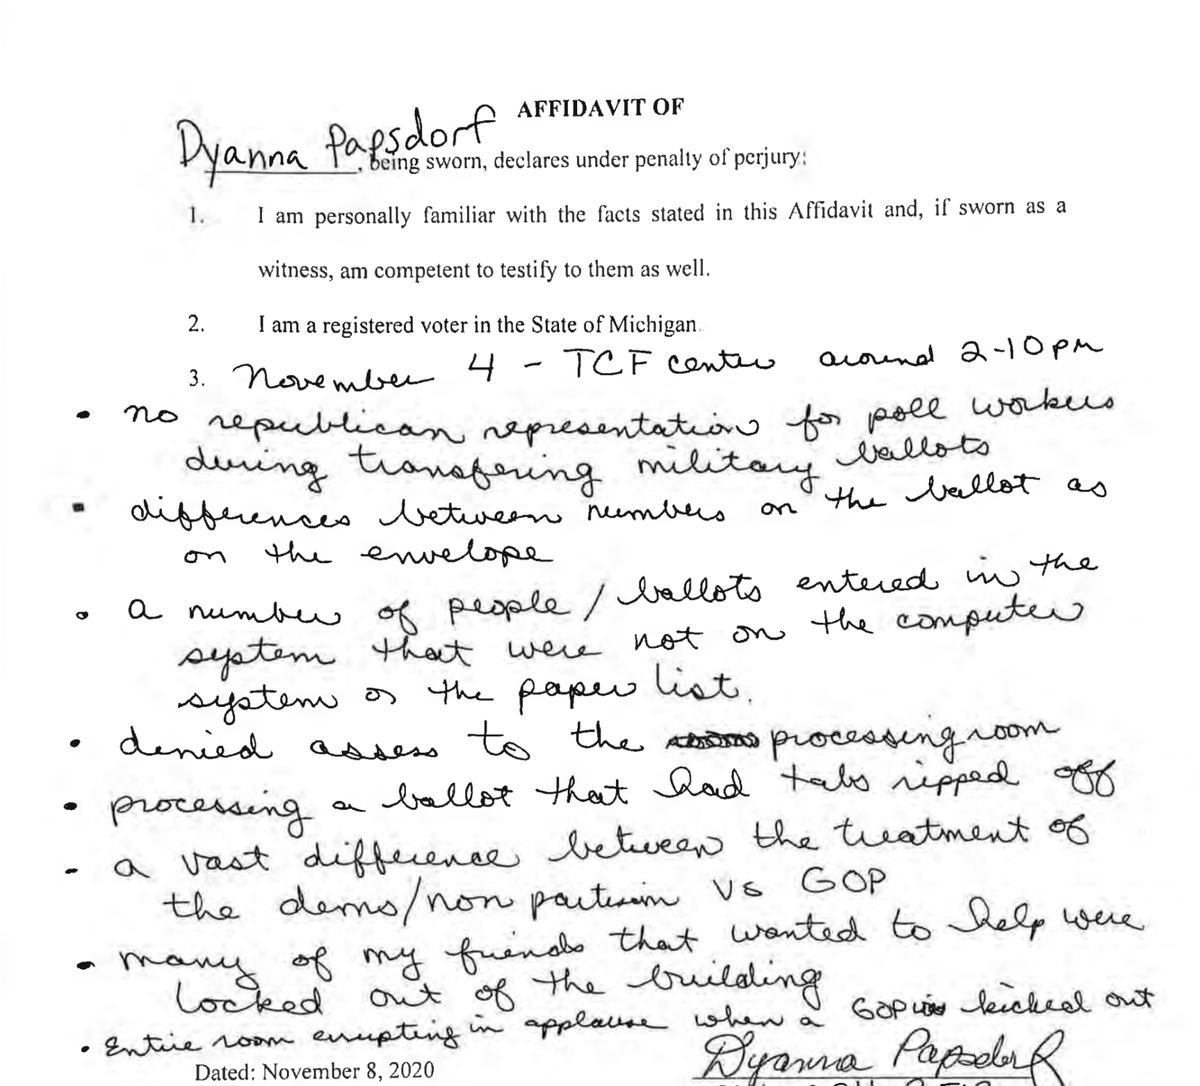 AFFIDAVIT OF
Dyanna Papsdorf, being sworn, declares under penalty of perjury:
1. I am personally familiar with the facts stated in this Affidavit and, if sworn as a
witness, am competent to testify to them as well.
2. I am a registered voter in the State of Michigan.
3. November 4 - TCF center around 2-10pm
• no republican representation for poll workers
during transfering military ballots
• differences between numbers on the ballot as
on the envelope
• a number of people/ballots entered in the
system that were not on the computer
system or the paper list.
• denied assess to the processing room
• processing a ballot that had tabs ripped off
- a vast difference between the treatment of
the dems/non partisan vs GOP
- many of my friends that wanted to help were
locked out of the building
• Entire room errupting in applause when a GOP is kicked out
Dyanna Papsdorf
Dated: November 8, 2020